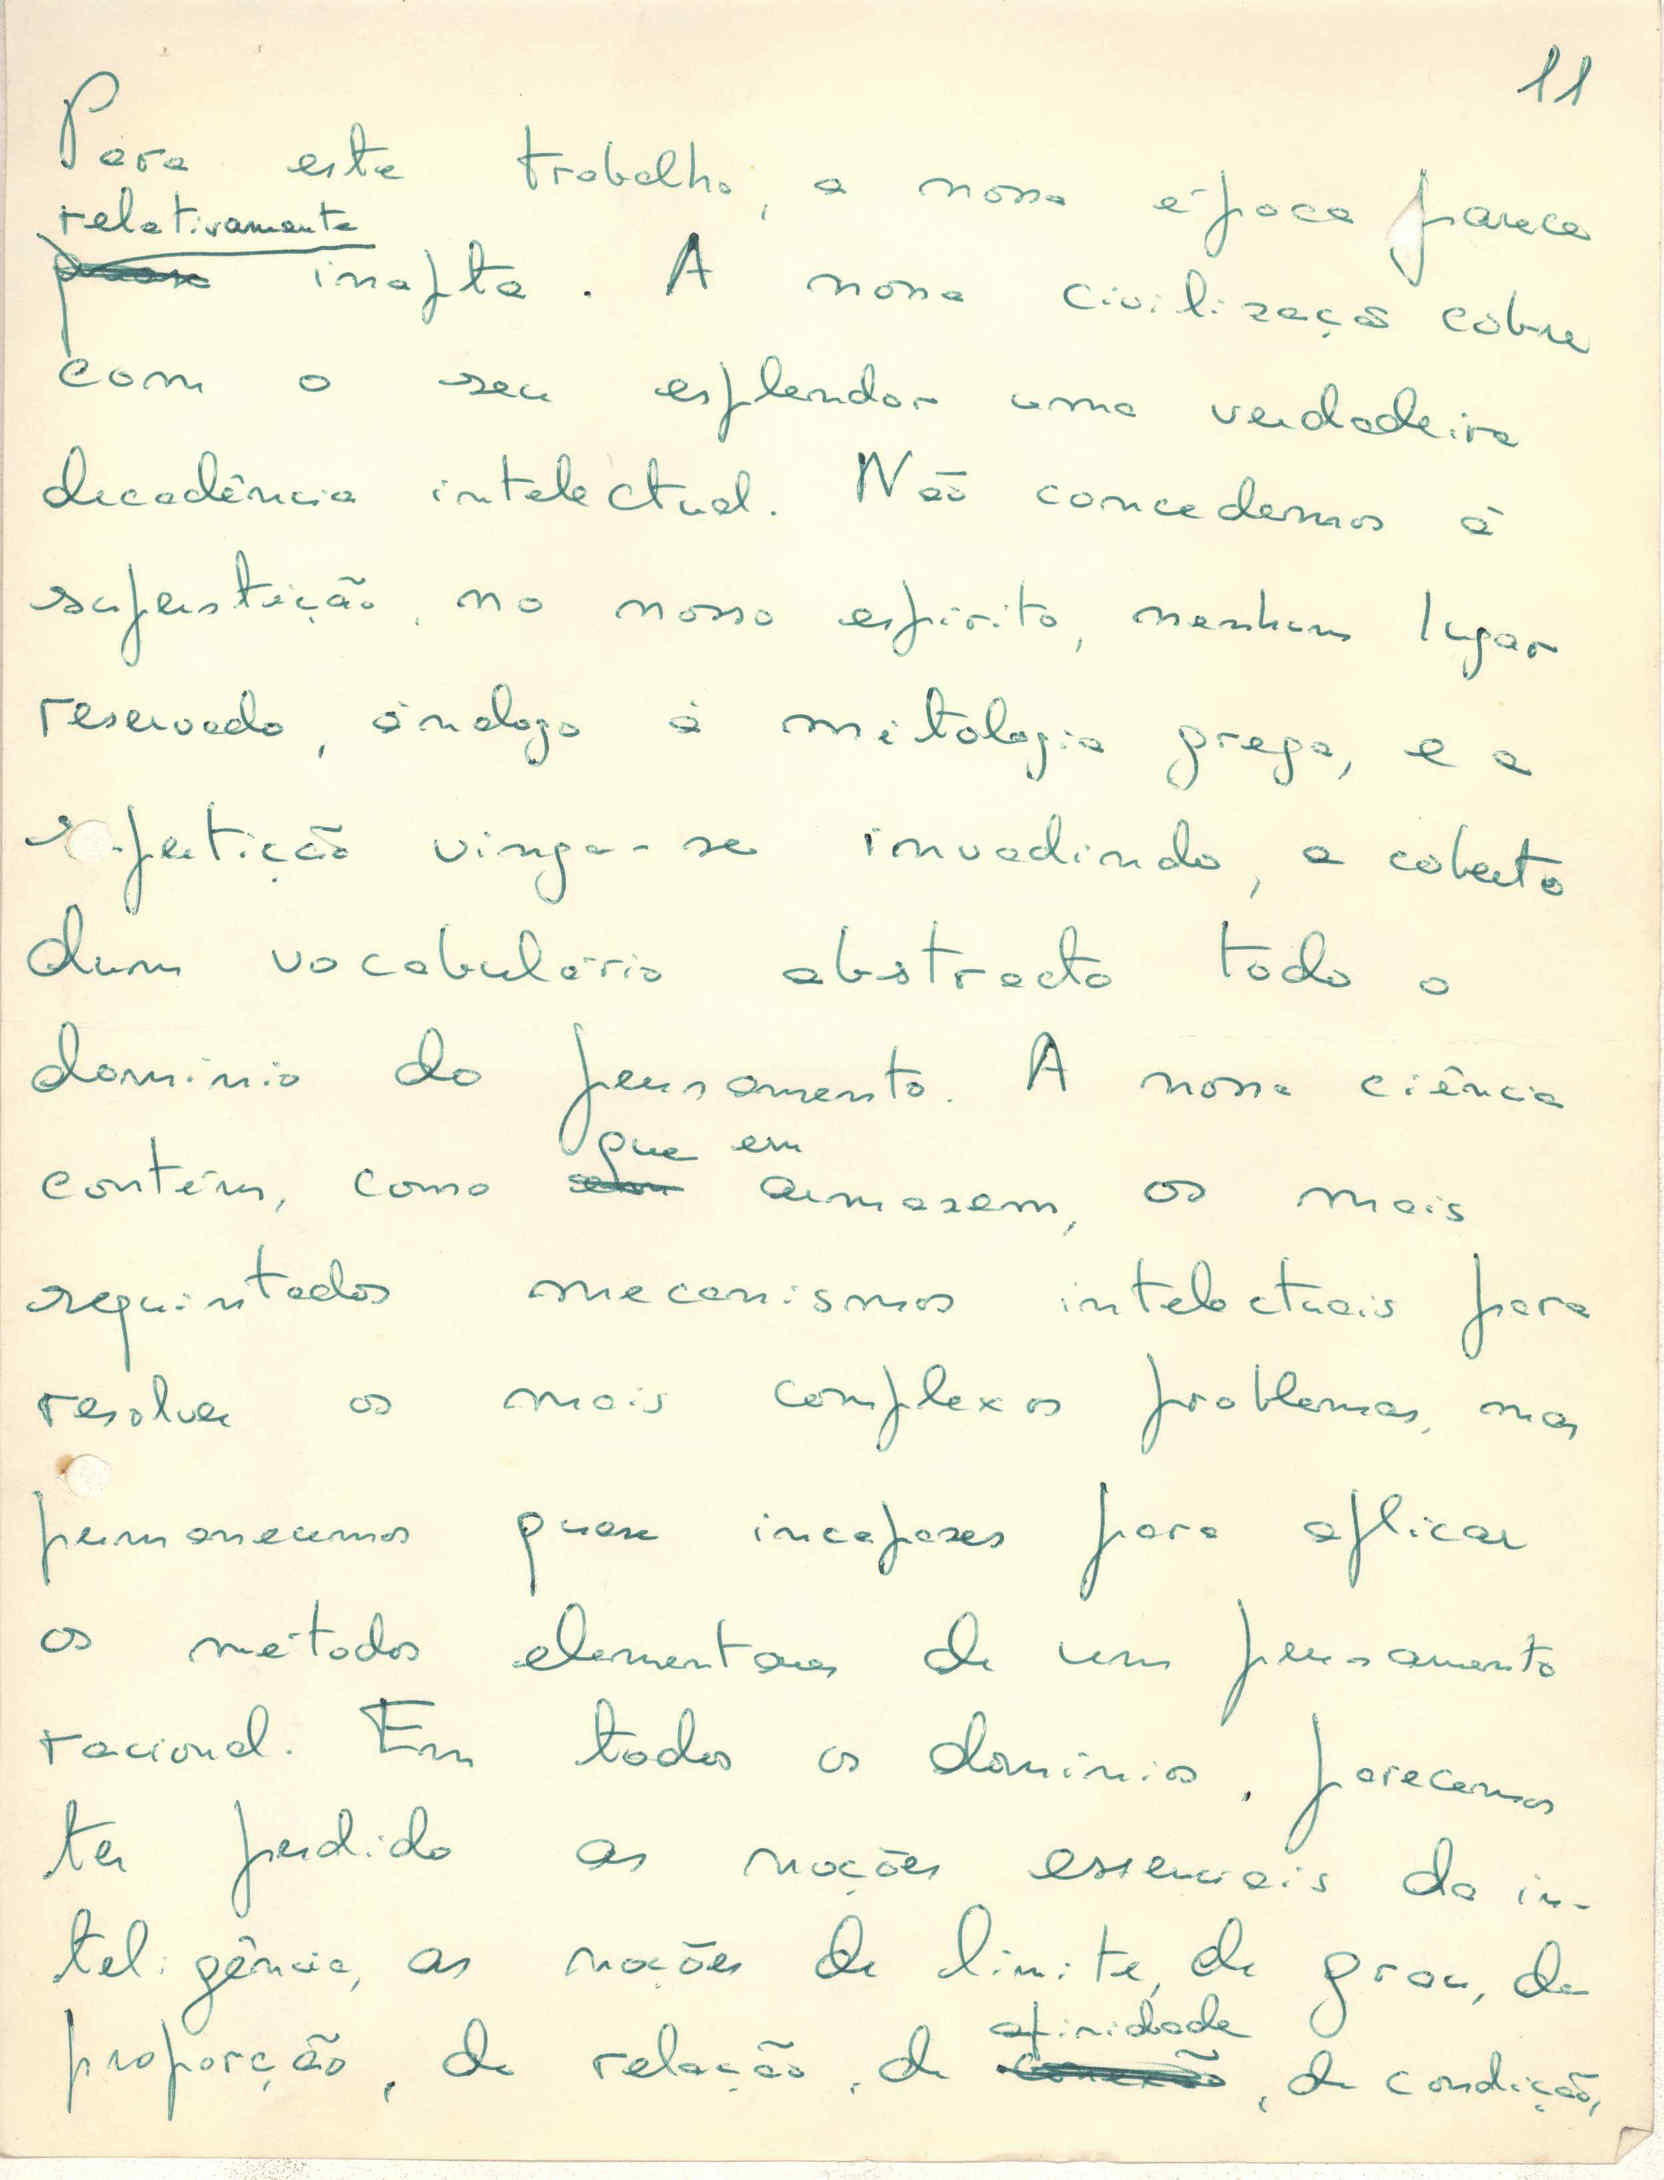 11
Para este trabalho, a nossa época parece
relativamente
inapta. A nossa civilização cobre
com o seu esplendor uma verdadeira
decadência intelectual. Não concedemos à
superstição, no nosso espírito, nenhum lugar
reservado, análogo à mitologia grega, e a
superstição vinga-se invadindo, a coberto
dum vocabulário abstracto todo o
domínio do pensamento. A nossa ciência
que em
contém, como armazem, os mais
requintados mecanismos intelectuais para
resolver os mais complexos problemas, mas
permanecemos quase incapazes para aplicar
os métodos elementares de um pensamento
racional. Em todos os domínios, parecemos
ter perdido as noções essenciais da in-
teligência, as noções de limite, de grau, de
afinidade
proporção, de relação, de conexão, de condição,